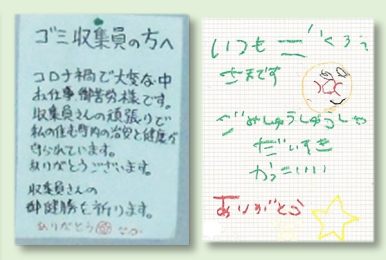 ゴミ収集員の方へ
コロナ禍で大変な中
お仕事御苦労様です。
収集員さんの頑張りで
私の住む町内の治安と健康が
守られています。
ありがとうございます。
収集員さんの
御健勝を祈ります。
ありがとう
いつもごくろう
さまです
しゅうしゅうしゃ
だいすき
かっこいい
ありがとう